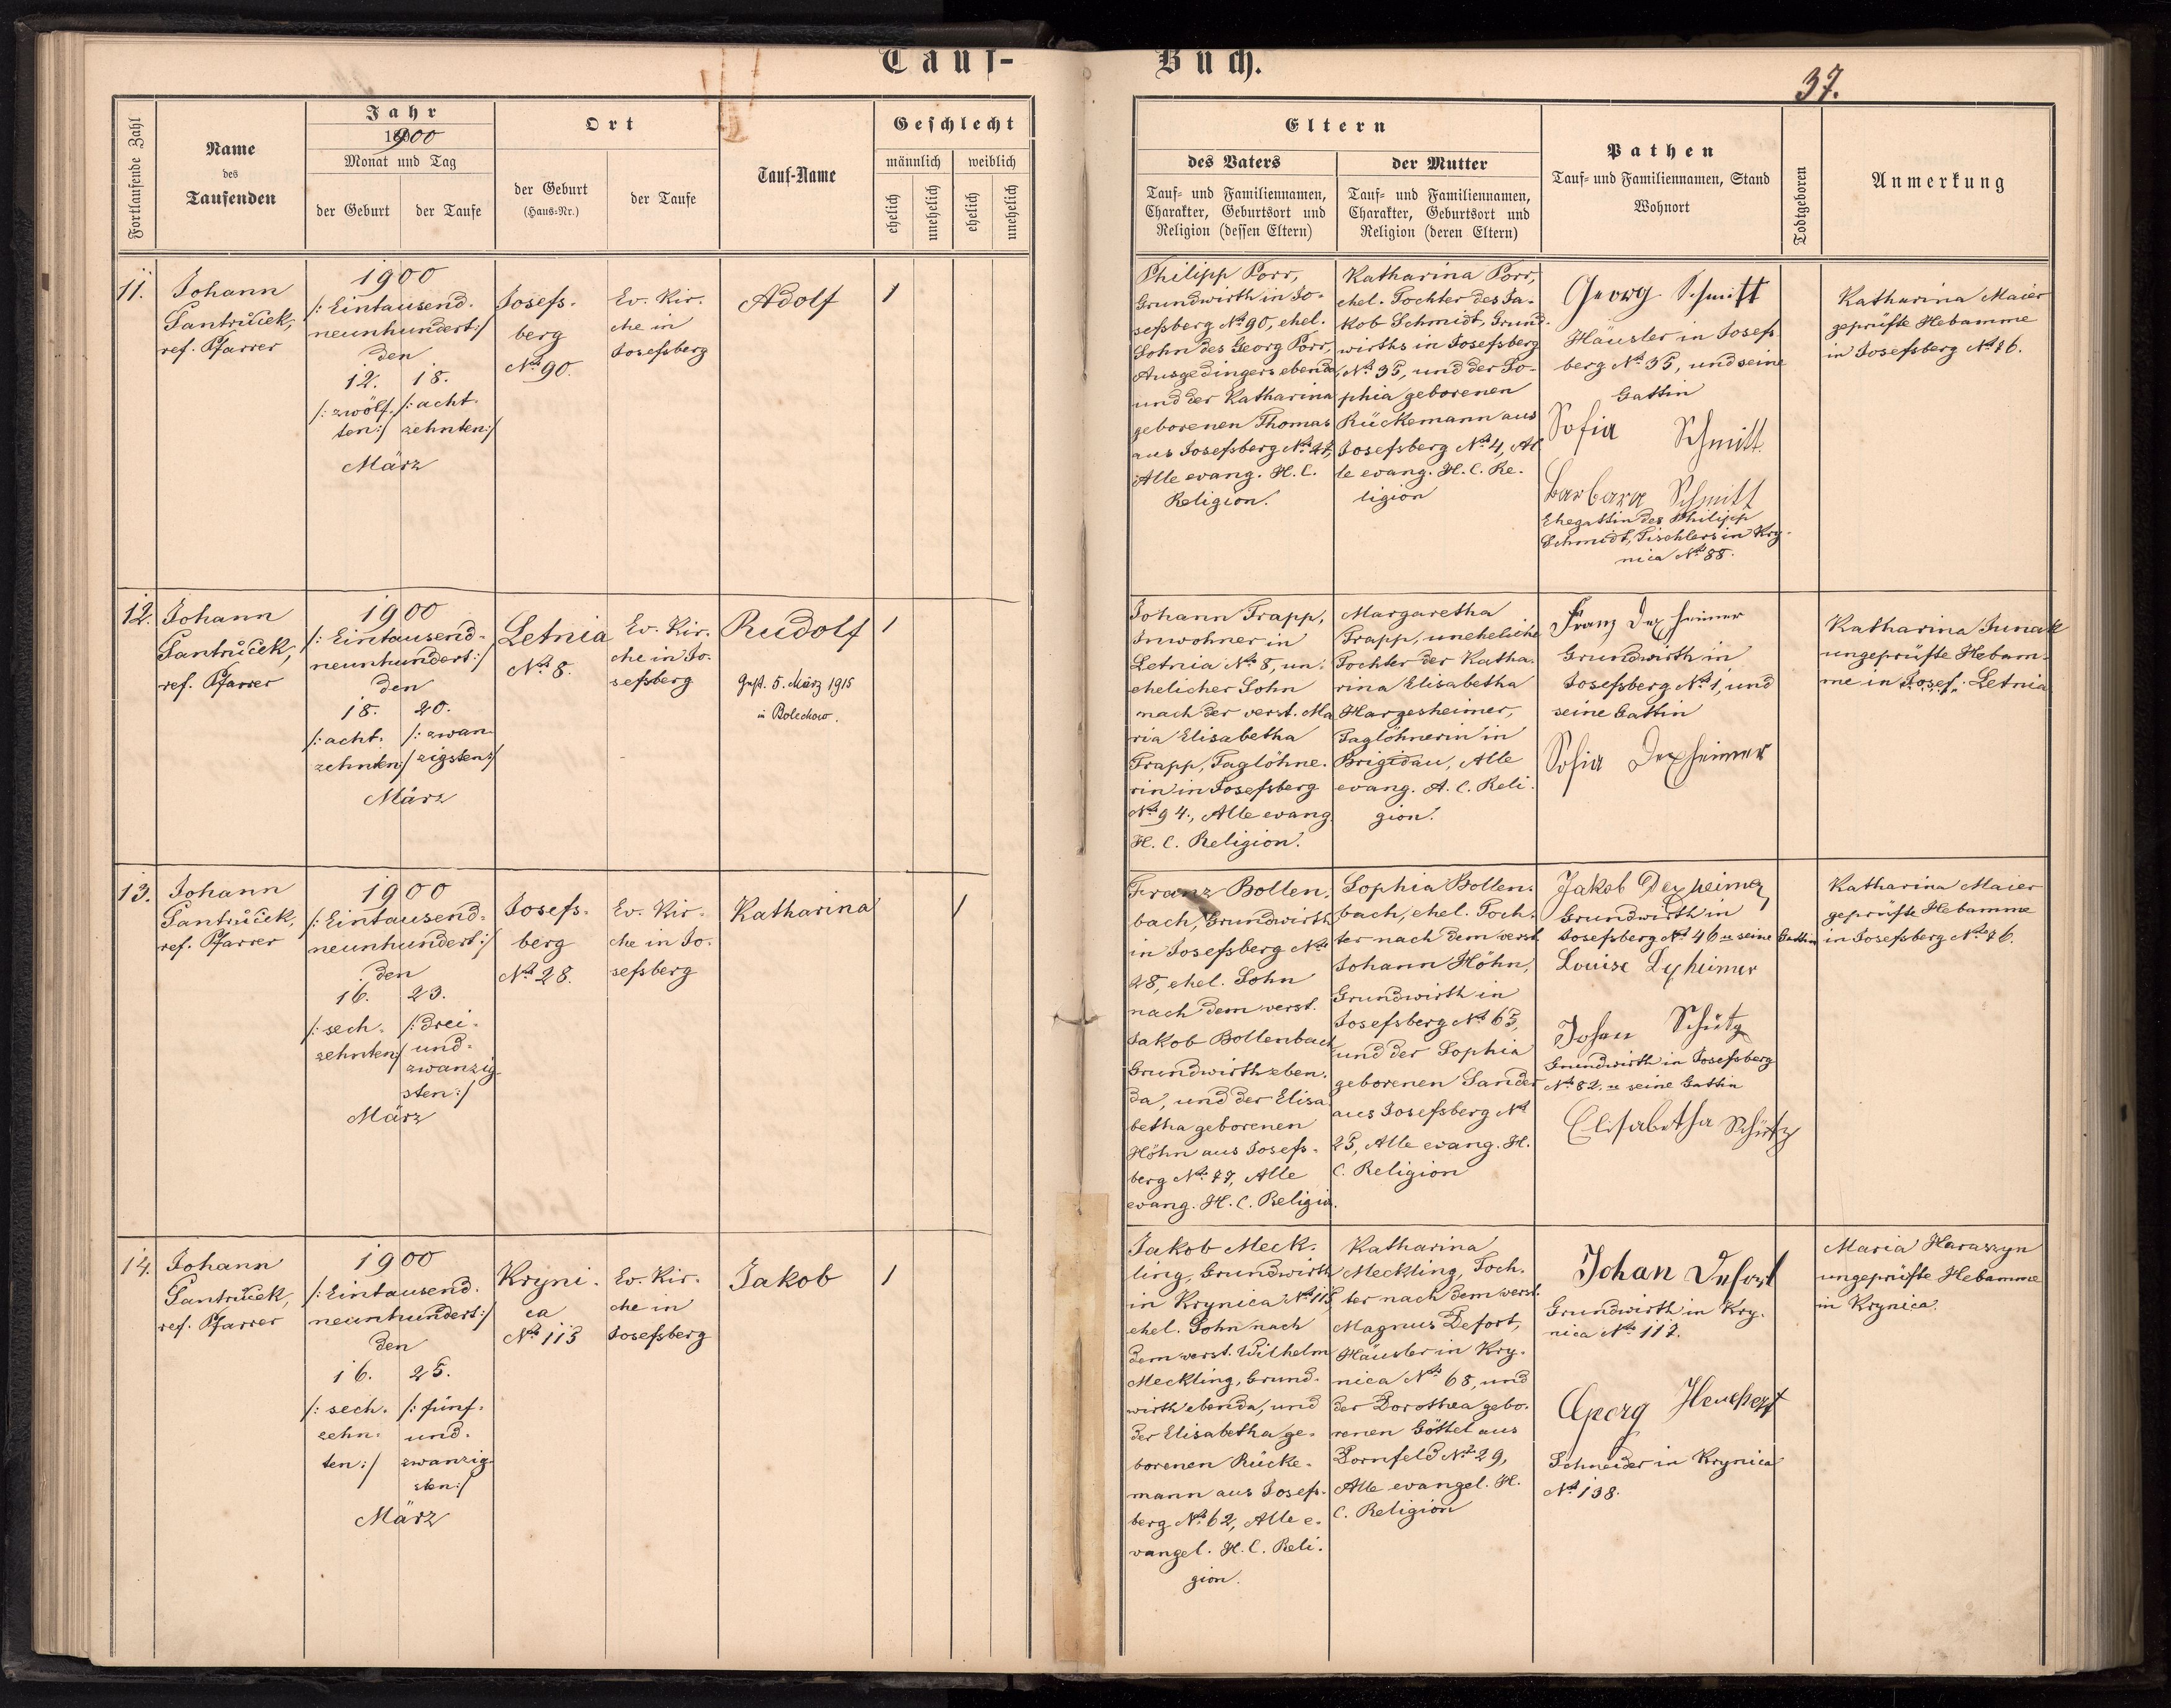 Tauf-
Buch.
37.
Fortlaufende Zahl
Name
des
Taufenden
Jahr
1900
Monat und Tag
der Geburt
der Taufe
Ort
der Geburt
(Haus-Nr.)
der Taufe
Tauf-Name
Geschlecht
männlich
weiblich
ehelich
unehelich
ehelich
unehelich
Eltern
des Vaters
Tauf- und Familiennamen,
Charakter, Geburtsort und
Religion (dessen Eltern)
der Mutter
Tauf- und Familiennamen,
Charakter, Geburtsort und
Religion (deren Eltern)
Pathen
Tauf- und Familiennamen, Stand
Wohnort
Todtgeboren
Anmerkung
11.
Johann
Santrůček,
ref. Pfarrer
1900
/: Eintausend-
neunhundert:/
den
12. 18.
/: zwölf- /: acht-
ten:/ zehnten:/
März
Josefs-
berg
No 90.
Ev. Kir-
che in
Josefsberg
Adolf
1
Philipp Porr,
Grundwirth in Jo-
sefsberg No 90, ehel.
Sohn des Georg Porr,
Ausgedingers ebenda,
und der Katharina
geborenen Thomas
aus Josefsberg No 47,
Alle evang. H. C.
Religion.
Katharina Porr,
ehel. Tochter des Ja-
kob Schmidt, Grund-
wirths in Josefsberg
No 35, und der So-
phia geborenen
Rückemann aus
Josefsberg No 4, Al-
le evang. H. C. Re-
ligion
Georg Schmitt
Häusler in Josefs
berg No 35, und seine
Gattin
Sofia Schmitt
Barbara Schmitt
Ehegattin des Philipp
Schmidt, Tischlers in Kry-
nica No 88.
Katharina Maier
geprüfte Hebamme
in Josefsberg No 76.
12.
Johann
Santrůček,
ref. Pfarrer
1900
/: Eintausend-
neunhundert:/
den
18. 20.
/: acht- /: zwan-
zehnten:/ zigsten:/
März
Letnia
No 8.
Ev. Kir-
che in Jo-
sefsberg
Rudolf
Gest. 5. März 1915
in Bolechow.
1
Johann Trapp,
Inwohner in
Letnia No 8, un-
ehelicher Sohn
nach der verst. Ma
ria Elisabetha
Trapp, Taglöhne-
rin in Josefsberg
No 94., Alle evang.
H. C. Religion.
Margaretha
Trapp, uneheliche
Tochter der Katha-
rina Elisabetha
Hargesheimer,
Taglöhnerin in
Brigidau, Alle
evang. A. C. Reli-
gion.
Franz Dexheimer
Grundwirth in
Josefsberg No 1, und
seine Gattin
Sofia Dexheimer
Katharina Junak
ungeprüfte Hebam-
me in Josef. Letnia
13.
Johann
Santrůček,
ref. Pfarrer
1900
/: Eintausend-
neunhundert:/
den
16. 23.
/: sech- /: drei-
zehnten:/ und-
zwanzig-
sten:/
März
Josefs-
berg
No 28.
Ev. Kir-
che in Jo-
sefsberg
Katharina
1
Franz Bollen-
bach, Grundwirth
in Josefsberg No
28, ehel. Sohn
nach dem verst.
Jakob Bollenbach
Grundwirth eben-
da, und der Elisa-
betha geborenen
Höhn aus Josefs-
berg No 77, Alle
evang. H. C. Religio.
Sophia Bollen-
bach, ehel. Toch-
ter nach dem verst.
Johann Höhn,
Grundwirth in
Josefsberg No 65,
und der Sophia
geborenen Sander
aus Josefsberg No
25, Alle evang. H.
C. Religion
Jakob Dexheimer
Grundwirth in
Josefsberg No 46 u seine Gattin
Louise Dexheimer
Johan Schütz
Grundwirth in Josefsberg
No 82. u seine Gattin
Elisabetha Schütz
Katharina Maier
geprüfte Hebamme
in Josefsberg No 76.
14.
Johann
Santrůček,
ref. Pfarrer
1900
/: Eintausend-
neunhundert:/
den
16. 25.
/: sech- /: fünf-
zehn- und-
ten:/ zwanzig-
sten:/
März
Kryni-
ca
No 113
Ev. Kir-
che in
Josefsberg
Jakob
1
Jakob Meck-
ling, Grundwirth
in Krynica No 113,
ehel. Sohn nach
dem verst. Wilhelm
Meckling, Grund-
wirth ebenda, und
der Elisabetha ge-
borenen Rücke-
mann aus Josefs-
berg No 62, Alle e-
vangel. H. C. Reli-
gion.
Katharina
Meckling, Toch-
ter nach dem verst.
Magnus Defort,
Häusler in Kry-
nica No 68, und
der Dorothea gebo-
renen Göttel aus
Dornfeld No 29,
Alle evangel. H.
C. Religion
Johan Defort
Grundwirth in Kry-
nica No 117.
Georg
Schneider in Krynica
No 138.
Maria Haraszyn
ungeprüfte Hebamme
in Krynica.